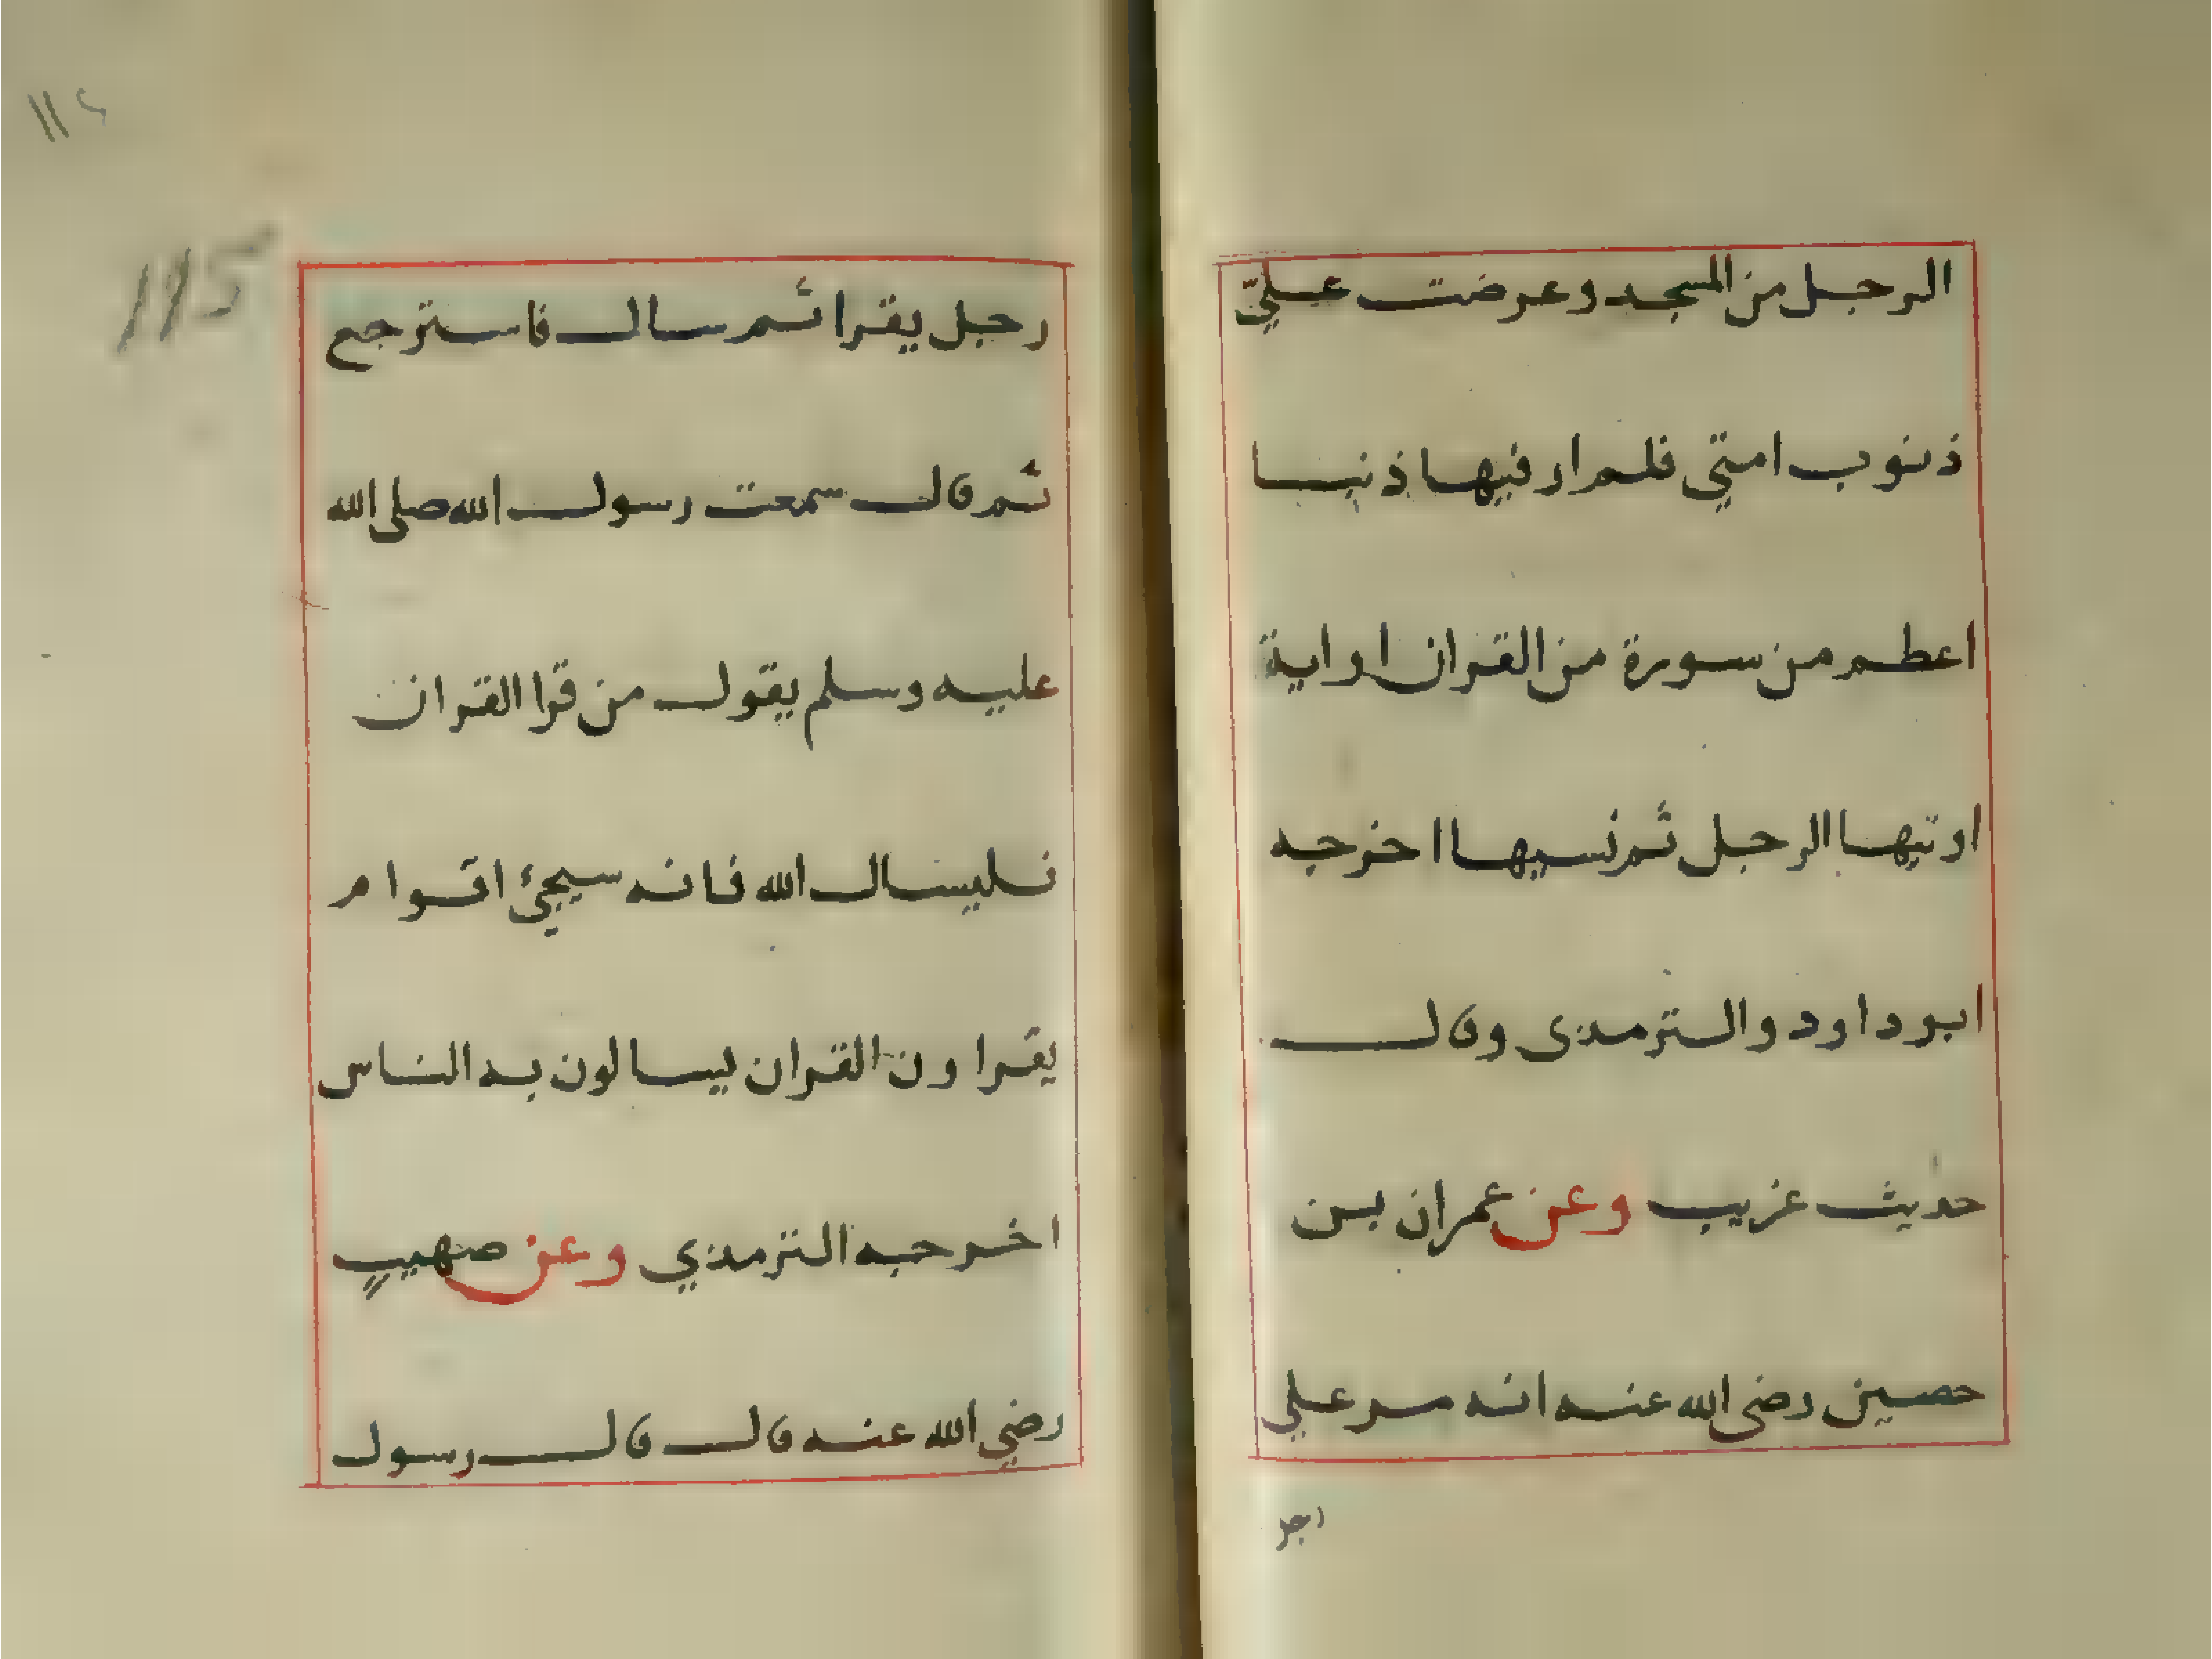 الرجل من المسجد وعرضت عليّ
ذنوب امتي فلم ار فيها ذنبا
اعظم من سورة من القران او اية
اوتيها الرجل ثم نسيها اخرجه
ابو داود والترمذى وقال
حديث غريب وعن عمران بن
حصين رضى الله عنه انه مر على
رجل يقرا ثم سال فاسترجع
ثم قال سمعت رسول الله صلى الله
عليه وسلم يقول من قرا القران
فليسال الله فانه سيجئ اقوام
يقراون القران يسالون به الناس
اخرجه الترمذي وعن صهيبٍ
رضي الله عنه قال قال رسول
115